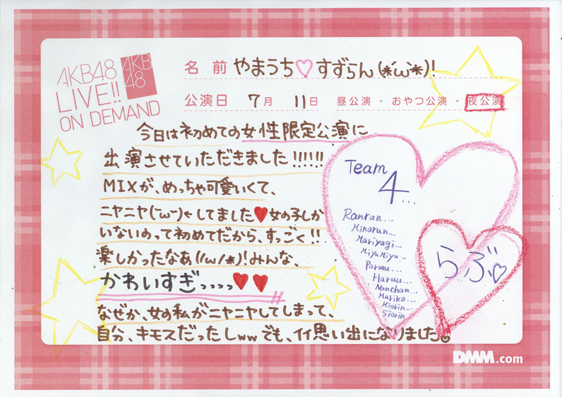 AKB48
LIVE!!
ON DEMAND
AKB
48
名前 やまうち♡すずらん(*'ω'*)!
公演日 7月 11日 昼公演・おやつ公演・夜公演
今日は初めての女性限定公演に
出演させていただきました!!!!!!
MIXが、めっちゃ可愛いくて、
ニヤニヤしてました♥女の子しか
いないのって初めてだから、すっごく!!
楽しかったなあ(/ω/*)!みんな、
かわいすぎっっっっ♥♥
なぜか、女の私がニヤニヤしてしまって、
自分、キモスだったしwwでも、イイ思い出になりました。
Team
4...
Ranran...
Minarun...
Mariyagi...
Miyamiya..
Paruru...
Haruu...
Nanchan...
Mariko...
Shiorin
らぶ♡
DMM.com